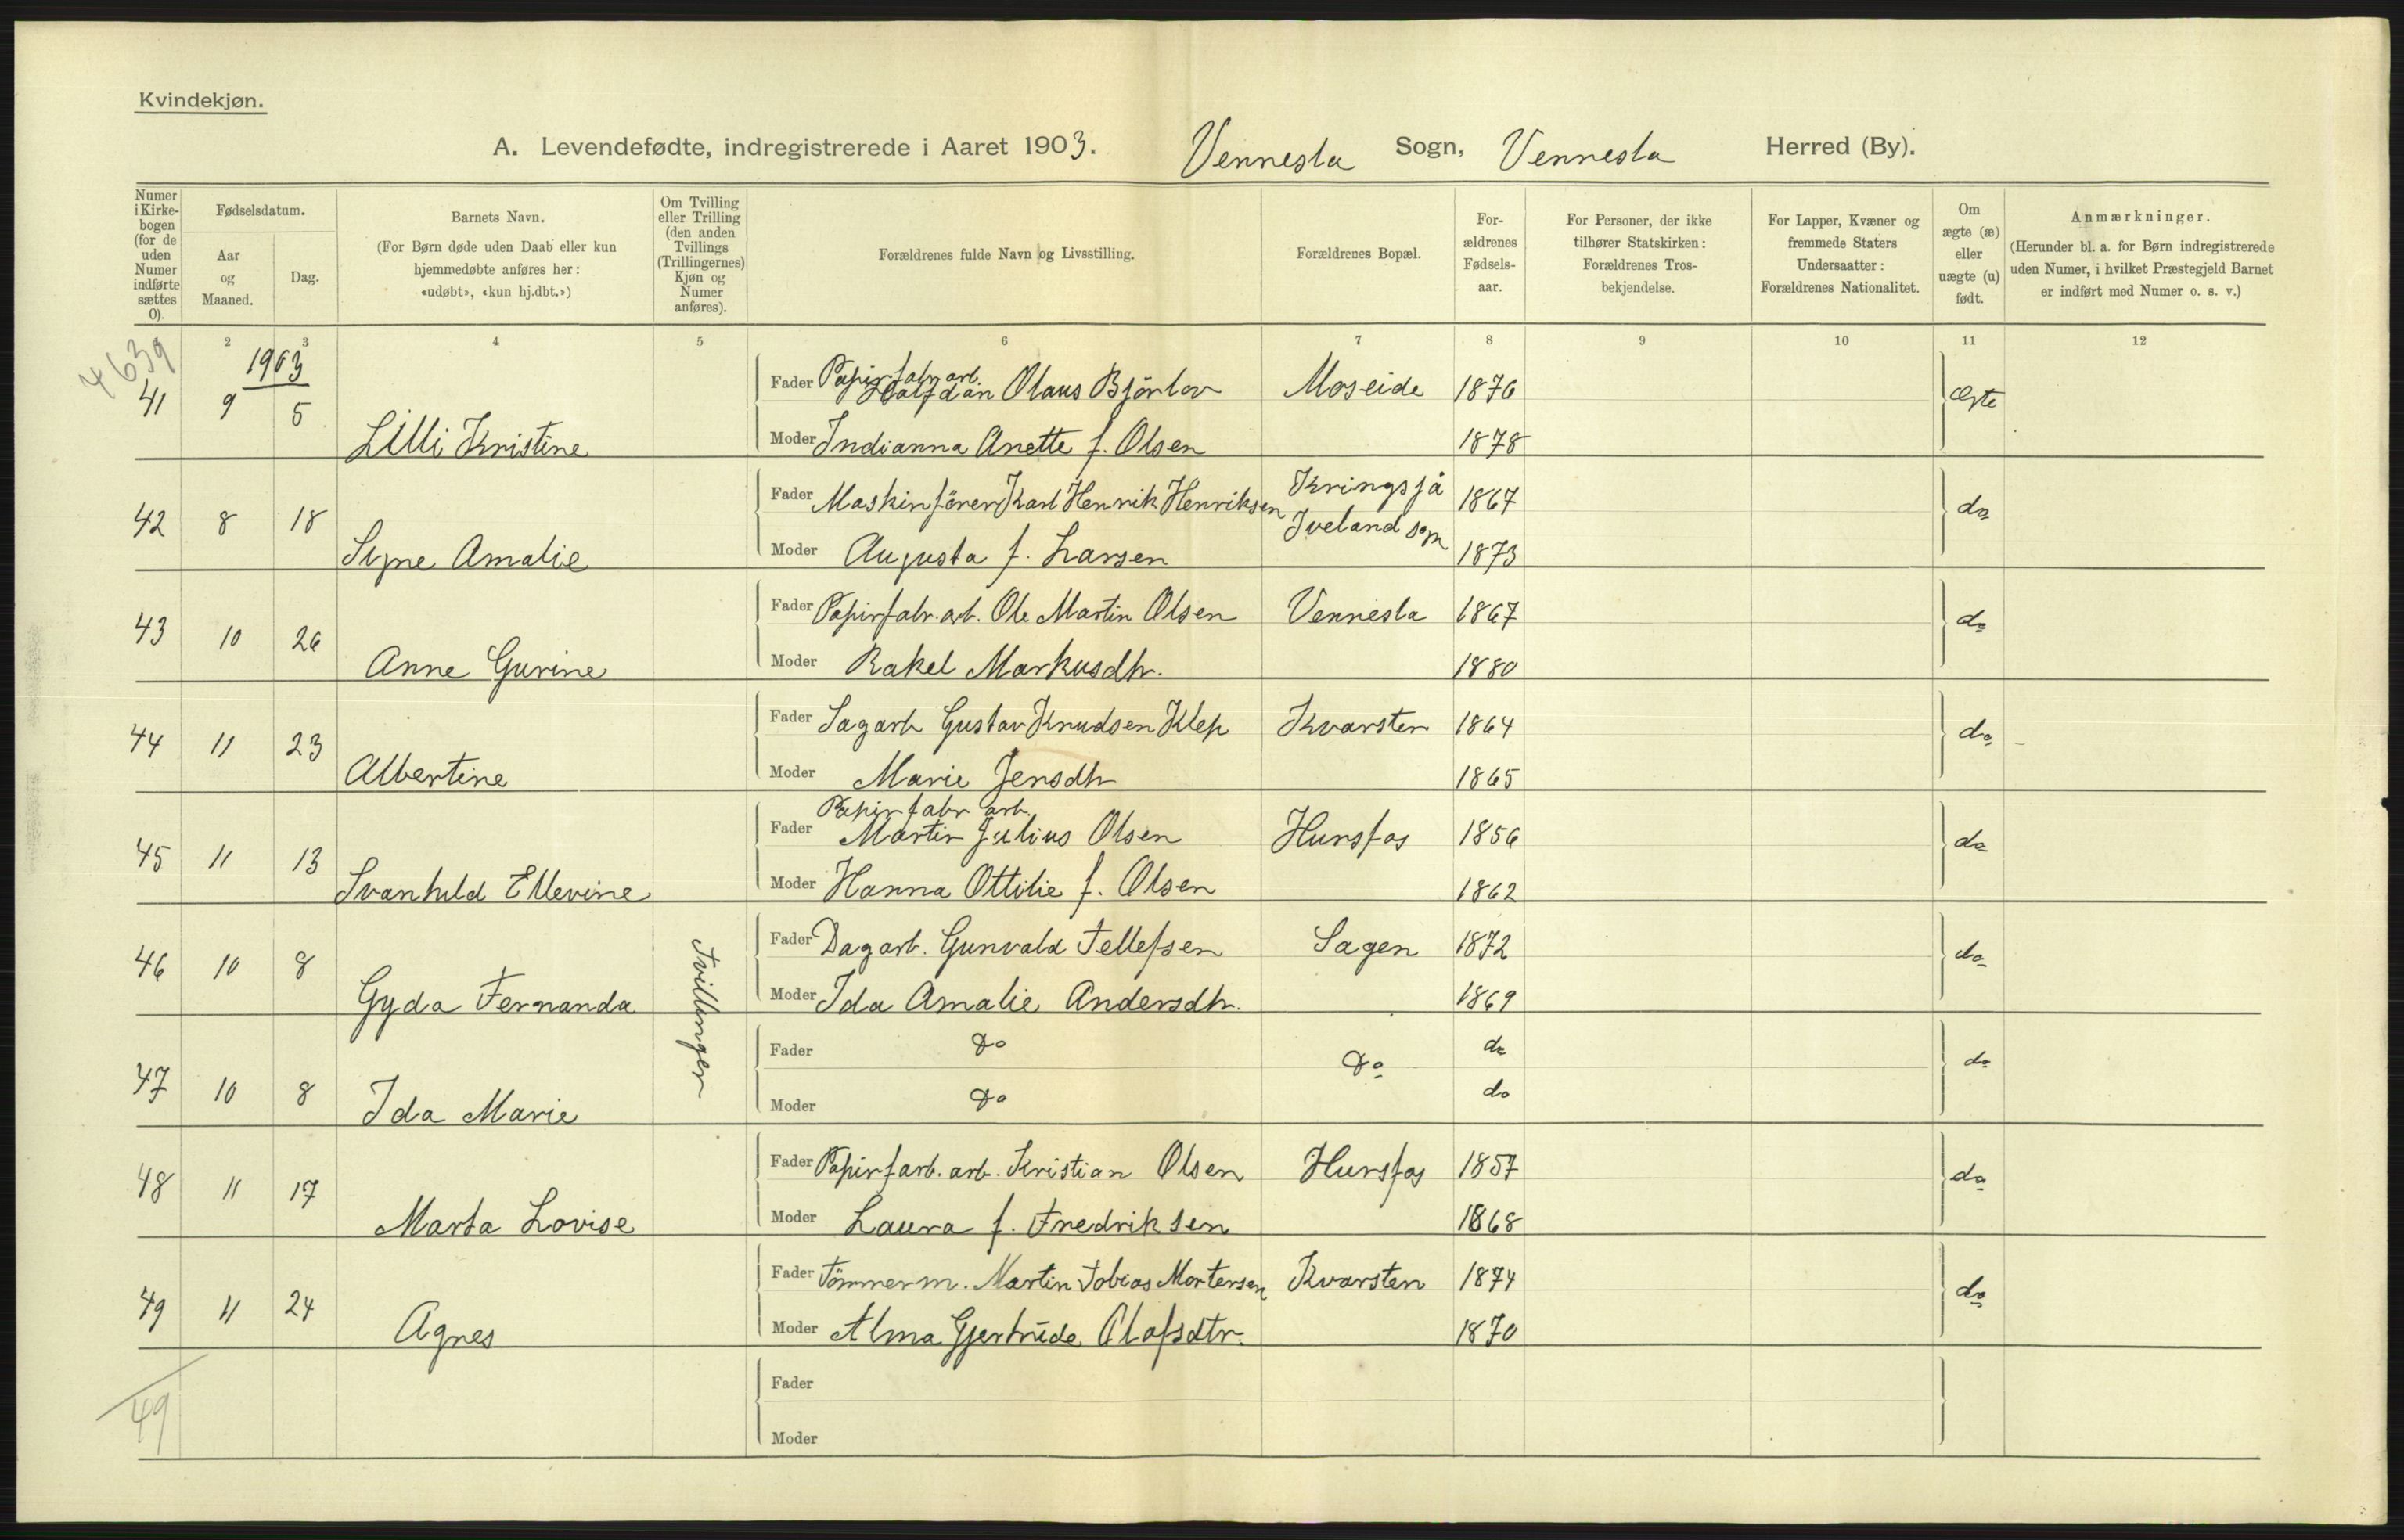 Kvindekjøn.
A. Levendefødte, indregistrerede i Aaret 1903. Vennesla Sogn, Vennesla Herred (By).
Numer i Kirke-bogen (for de uden Numer indførte sættes 0).
Fødselsdatum.
Aar og Maaned.
Dag.
Barnets Navn.
(For Børn døde uden Daab eller kun hjemmedøbte anføres her: «udøbt», «kun hj.dbt.»)
Om Tvilling eller Trilling (den anden Tvillings (Trillingernes) Kjøn og Numer anføres).
Forældrenes fulde Navn og Livsstilling.
Forældrenes Bopæl.
For-ældrenes Fødsels-aar.
For Personer, der ikke tilhører Statskirken: Forældrenes Tros-bekjendelse.
For Lapper, Kvæner og fremmede Staters Undersaatter: Forældrenes Nationalitet.
Om ægte (æ) eller uægte (u) født.
Anmærkninger.
(Herunder bl. a. for Børn indregistrerede uden Numer, i hvilket Præstegjeld Barnet er indført med Numer o. s. v.)
2 3 4 5 6 7 8 9 10 11 12
4639
1903
41 9 5 Lilli Kristine
Fader Papirfabr. arb. Halfdan Olaus Bjørlov Moseide 1876 Ægte
Moder Indianna Anette f. Olsen 1878
42 8 18 Signe Amalie
Fader Maskinfører Karl Henrik Henriksen Kringsjå Iveland sogn 1867 do
Moder Augusta f. Larsen 1873
43 10 26 Anne Gurine
Fader Papirfabr. arb. Ole Martin Olsen Vennesla 1867 do
Moder Rakel Markusdtr. 1880
44 11 23 Albertine
Fader Sagarb Gustav Knudsen Klep Kvarsten 1864 do
Moder Marie Jensdtr 1865
45 11 13 Svanhild Ellevine
Fader Papirfabr arb. Martin Julius Olsen Hunsfos 1856 do
Moder Hanna Ottilie f. Olsen 1862
46 10 8 Gyda Fernanda Tvillinger
Fader Dagarb. Gunvald Tellefsen Sagen 1872 do
Moder Ida Amalie Andersdtr. 1869
47 10 8 Ida Marie
Fader Do Do do do
Moder Do do
48 11 17 Marta Lovise
Fader Papirfarb. arb. Kristian Olsen Hunsfos 1857 do
Moder Laura f. Fredriksen 1868
49 11 24 Agnes
Fader Tömmerm. Martin Tobias Mortensen Kvarsten 1874 do
Moder Alma Gjertrude Olafsdtr. 1870
49
Fader
Moder